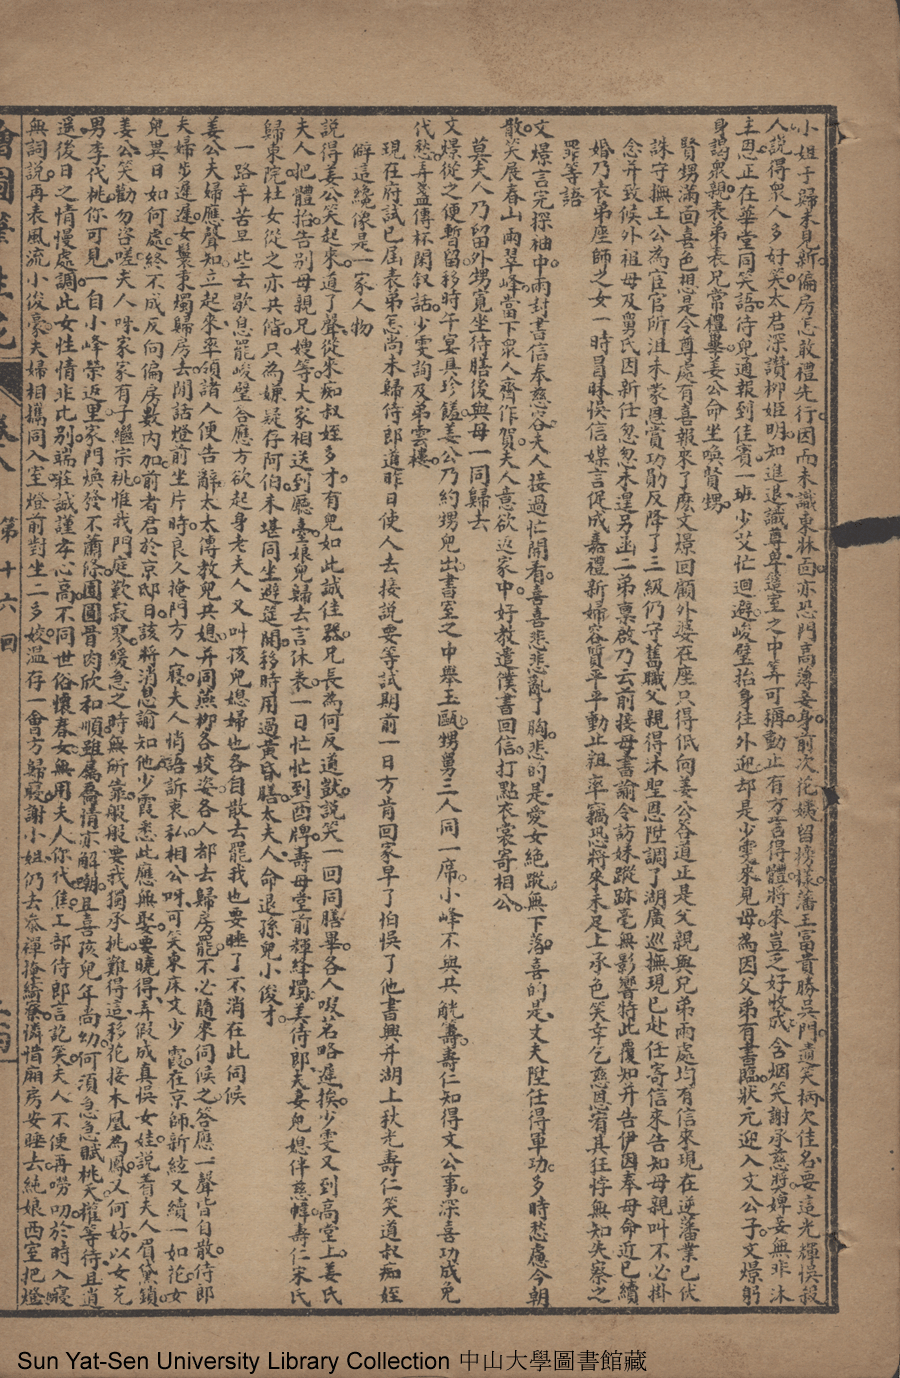 小姐于歸未見新偏房怎敢禮先行因而未識東牀面亦恐門高薄妾身前次花姨留榜樣藩王富貴勝吳門遺笑柄欠佳名要這光輝悞殺
人說得衆人多好笑太君深讚柳姬明知進退識尊卑簉室之中等可稱動止有方言得體將來豈乏好收成含烟笑謝承慈獎婢妾無非沐
主恩正在華堂同笑語侍兒通報到佳賓一班少艾忙迴避峻璧抬身往外迎却是少雯來見母為因父弟有書臨狀元迎入文公子文㬌躬
身謁衆親表弟表兄常禮畢姜公命坐喚賢甥
賢甥滿面喜色想是令尊處有喜報來了麽文㬌回顧外婆在座只得低向姜公各道正是父親與兄弟兩處均有信來現在逆藩業已伏
誅守撫王公為宦官所沮未蒙恩賞功勛反降了三級仍守舊職父親得沐聖恩陞調了湖廣巡撫現已赴任寄信來告知母親叫不必掛
念并致候外祖母及舅氏因新任忽忽未遑另函二弟稟啟乃云前接母書諭令訪妹蹤跡毫無影響特此覆知并告伊因奉母命近已續
婚乃表弟座師之女一時冒昧悞信媒言促成嘉禮新婦容質平平動止粗率竊恐將來未足上承色笑幸乞慈恩宥其狂悖無知失察之
罪等語
文㬌言完探袖中兩封書信奉慈容夫人接過忙開看喜喜悲悲亂了胸悲的是愛女絕蹤無下落喜的是丈夫陞任得軍功多時愁慮今朝
散笑展春山兩翠峰當下衆人齊作賀夫人意欲返家中好教遣僕書回信打點衣裳寄相公
莫夫人乃留外甥寬坐待膳後與母一同歸去
文㬌從之便暫留移時午宴具珍饈姜公乃約甥兒出書室之中舉玉甌甥舅三人同一席小峰不與共觥籌壽仁知得文公事深喜功成免
代愁弄盞傳杯閑叙話少雯詢及弟雲樓
現在府試已屆表弟怎尚未歸侍郎道昨日使人去接說要等試期前一日方肯回家早了怕悞了他書興并湖上秋光壽仁笑道叔痴姪
僻這纔像是一家人物
說得姜公笑起來道了聲從來痴叔姪多才有兒如此誠佳器兄長為何反道獃說笑一回同膳畢各人啜茗略遲挨少雯又到高堂上姜氏
夫人把體抬告別母親兄嫂等大家相送到廳臺娘兒歸去言休表一日忙忙到酉牌壽母堂前輝絳燭姜侍郎夫妻兒媳伴慈幃壽仁宋氏
歸東院杜女從之亦共偕只為嫌疑存阿伯未堪同坐避筵開移時用過黄昏膳太夫人命退孫兒小俊才
一路辛苦早些去歇息罷峻璧答應方欲起身老夫人又叫孩兒媳婦也各自散去罷我也要睡了不消在此伺候
姜公夫婦應聲知立起來率領諸人便告辭太太傳教兒共媳并同燕柳各姣姿各人都去歸房罷不必隨來伺候之答應一聲皆自散侍郎
夫婦步遲遲女鬟秉燭歸房去閒話燈前坐片時良久掩門方入寢夫人悄語訴衷私相公呀可笑東床文少霞在京師新絃又續一如花女
兒異日如何處終不成反向偏房數內加前者君於京邸日該將消息諭知他少霞悉此應無娶要曉得弄假成真悞女娃說着夫人眉黛鎖
姜公笑勸勿咨嗟夫人呀家家有子繼宗祧惟我門庭歎寂寥緩急之時無所靠般般要我獨承挑難得這移花接木凰為鳳又何妨以女充
男李代桃你可見一自小峰榮返里家門煥發不蕭條團圓骨肉欣和順雖屬螽清亦解嘲且喜孩兒年尚幼何須急急賦桃夭權等待且逍
遥後日之情慢處調此女性情非比别端莊誠謹孝心高不同世俗懷春女無用夫人你代焦工部侍郎言訖笑夫人不便再嘮叨於時入寢
無詞說再表風流小俊豪夫婦相攜同入室燈前對坐二多姣温存一會方歸寢謝小姐仍去叅禪掩綺寮憐惜廂房安睡去純娘西室把燈
繪圖筆生花
卷八
第十六回
Sun Yat-Sen University Library Collection 中山大學圖書館藏